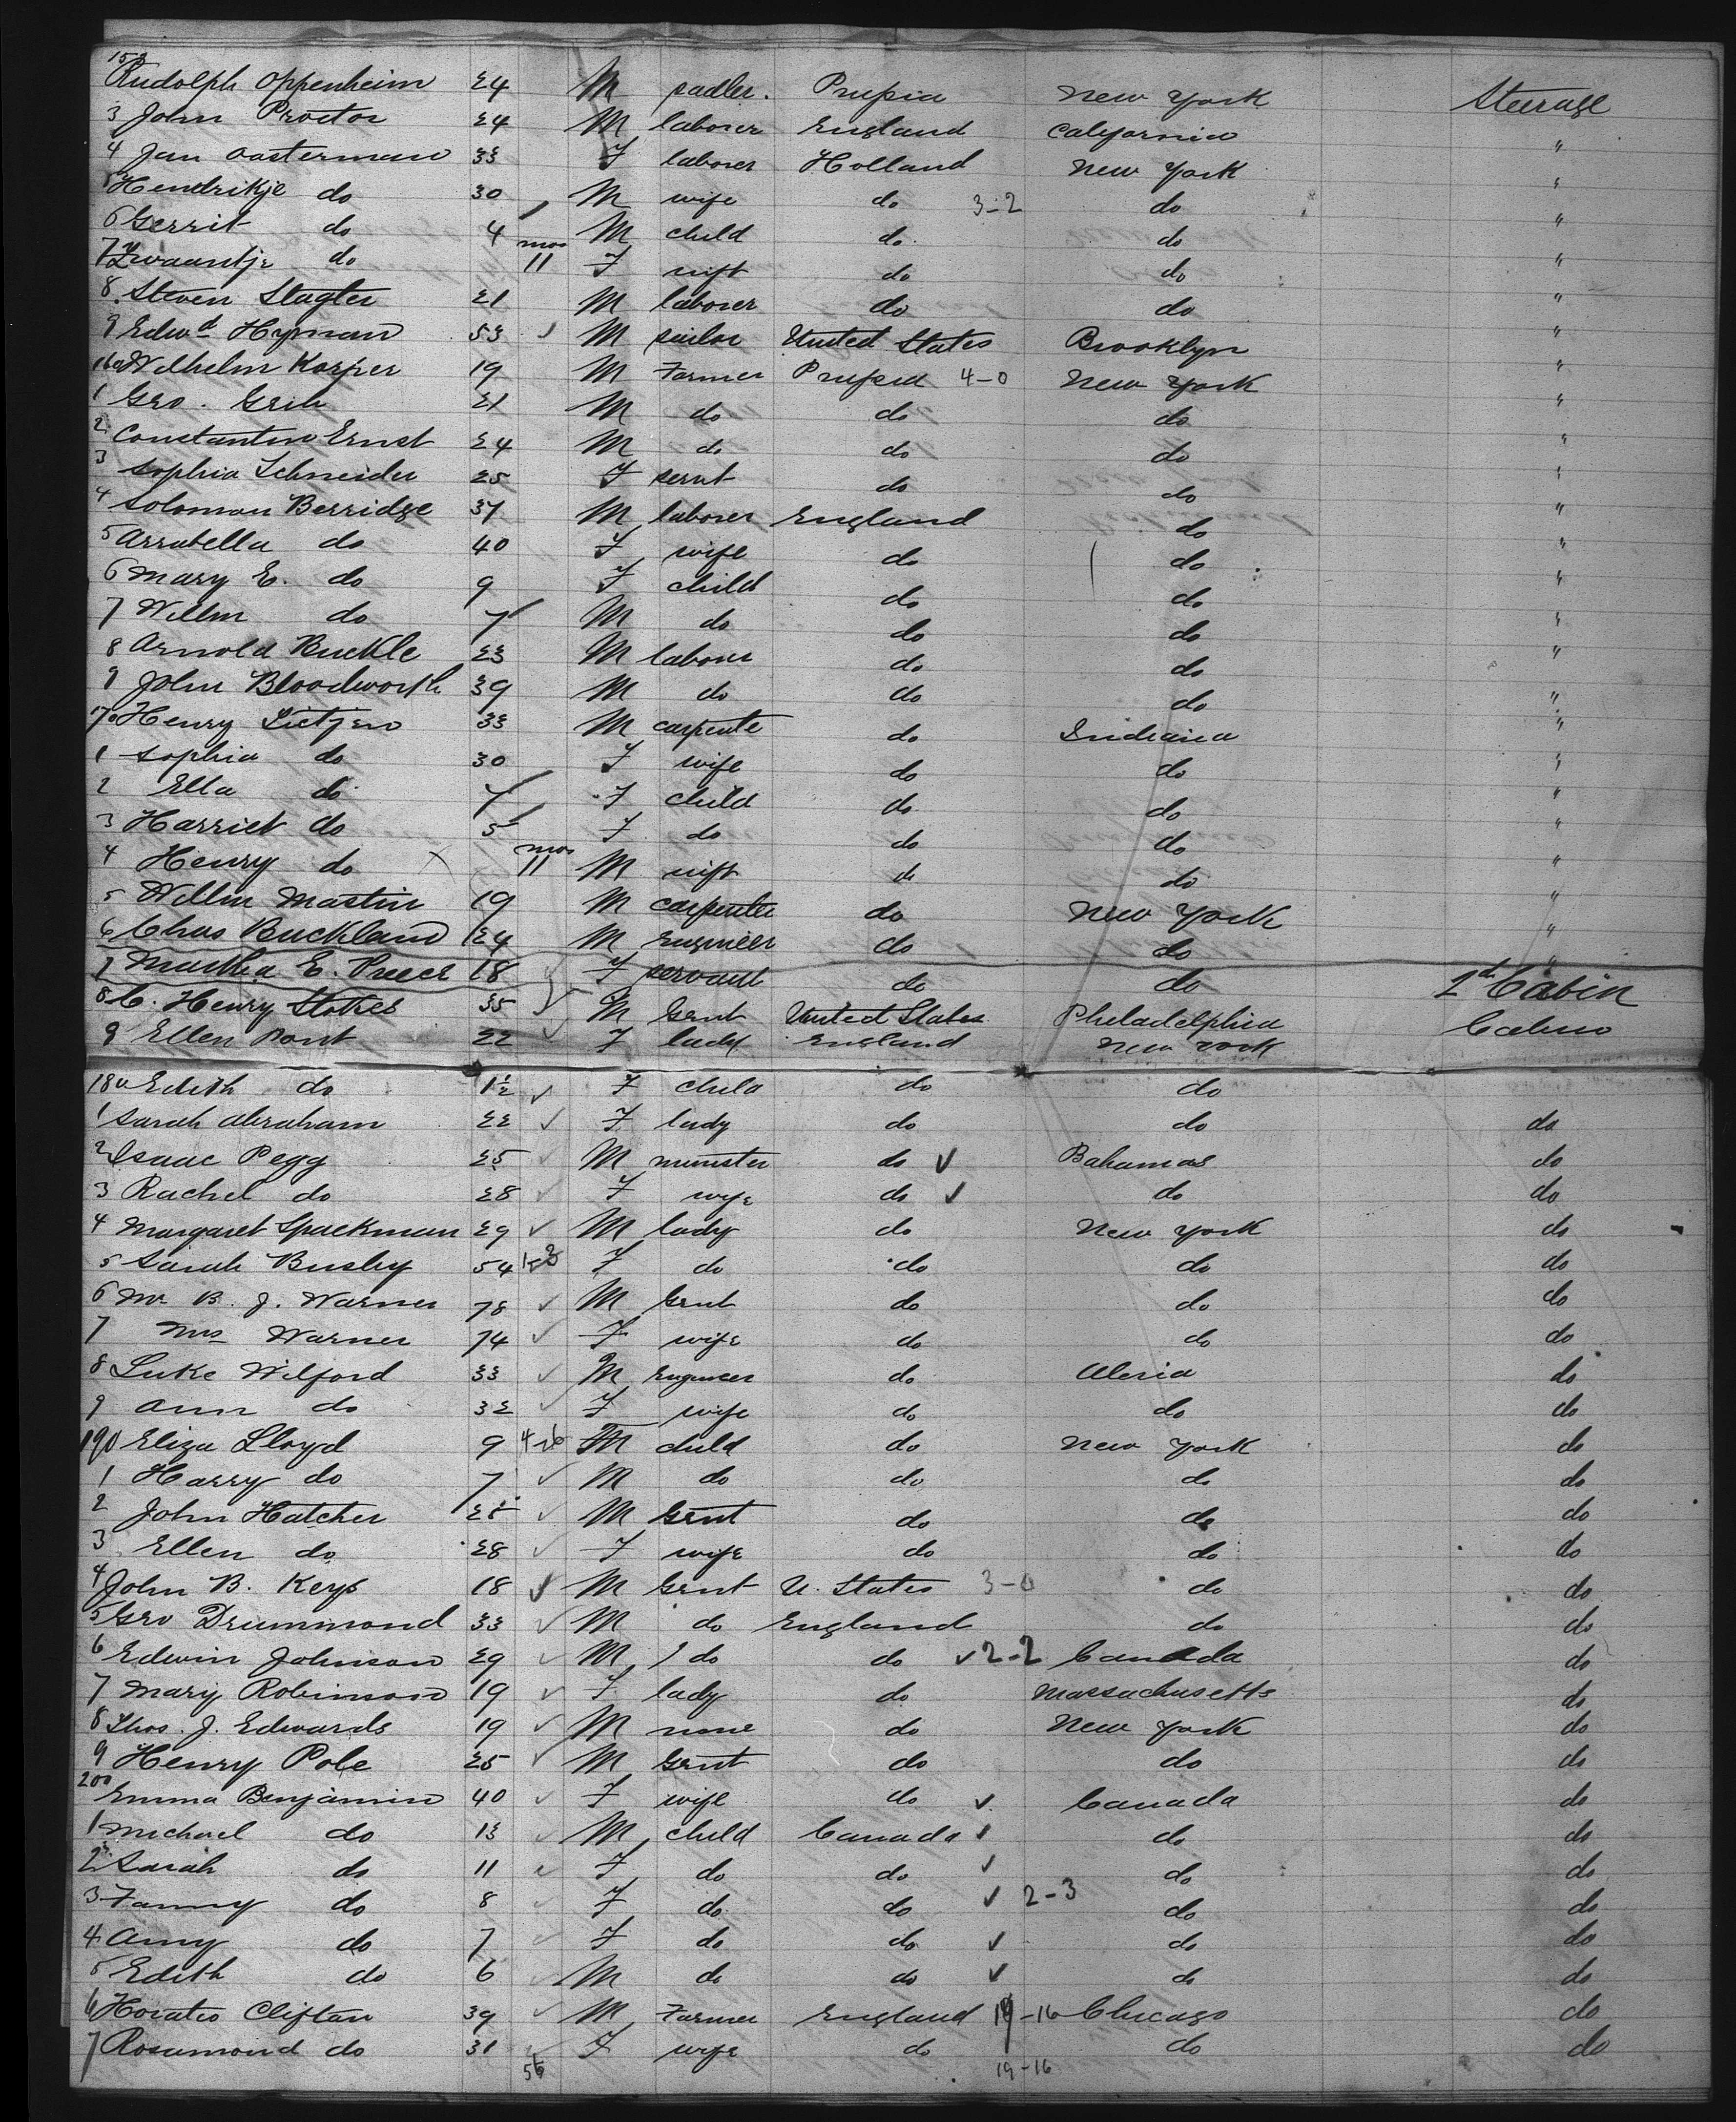 152 Rudolph Oppenheim 24 M sadler. Prussia New York Steerage
3 John Proctor 24 M laborer England California "
4 Jan Oosterman 33 F laborer Holland New York "
5 Hendrikje do 30 M wife do 3-2 do "
6 Gerrit do 4 M child do do "
7 Zwaantje do mos 11 F inft do do "
8 Steven Slagter 21 M laborer do do "
9 Edwd Hyman 53 M sailor United States Brooklyn "
160 Wilhelm Korper 19 M Farmer Prussia 4-0 New York "
1 Geo. Grih 21 M do do do "
2 Constantine Ernst 24 M do do do "
3 Sophia Schneider 25 F servt do do "
4 Solomon Berridge 37 M laborer England do "
5 Arrabella do 40 F wife do do "
6 Mary E. do 9 F child do do "
7 Willm do 7 M do do do "
8 Arnold Buckle 23 M laborer do do "
9 John Bloodworth 39 M do do do "
70 Henry Tietjen 33 M carpente do Indiana "
1 Sophia do 30 F wife do do "
2 Ella do 7 F child do do "
3 Harriet do 5 F do do do "
4 Henry do mos 11 M inft do do "
5 Willm Martin 19 M carpenter do New York "
6 Chas Buckland 24 M Engineer do do "
7 Martha E. 18 F servant do do 2d Cabin
8 C. Henry Stokes 35 M Gent United States Philadelphia Cabin
9 Ellen Pont 22 F lady England New York
180 Edith do 1½ F child do do
1 Sarah Abraham 22 F lady do do do
2 Isaac Pegg 25 M minister do Bahamas do
3 Rachel do 28 F wife do do do
4 Margaret Spackman 29 M lady do New York do
5 Sarah Busby 54 F do do do do
6 Mr B. J. Warner 78 M Gent do do do
7 Mrs Warner 74 F wife do do do
8 Luke Wilford 33 M Engineer do do
9 Ann do 32 F wife do do do
190 Eliza Lloyd 9 M child do New York do
1 Harry do 7 M do do do do
2 John Hatcher 28 M Gent do do do
3 Ellen do 28 F wife do do do
4 John B. Keys 18 M Gent U. States 3-0 do do
5 Geo Drummond 33 M do England do do
6 Edwin Johnson 29 M do do 2-2 Canada do
7 Mary Robinson 19 F lady do Massachusetts do
8 Thos. J. Edwards 19 M none do New York do
9 Henry Pole 25 M Gent do do do
200 Emma Benjamin 40 F wife do Canada do
1 Michael do 13 M child Canada do do
2 Sarah do 11 F do do do do
3 Fanny do 8 F do do 2-3 do do
4 Amy do 7 F do do do do
5 Edith do 6 M do do do do
6 Horatio Clifton 39 M Farmer England 19-16 Chicago do
7 Rosamond do 31 F wife do do do
56 19-16